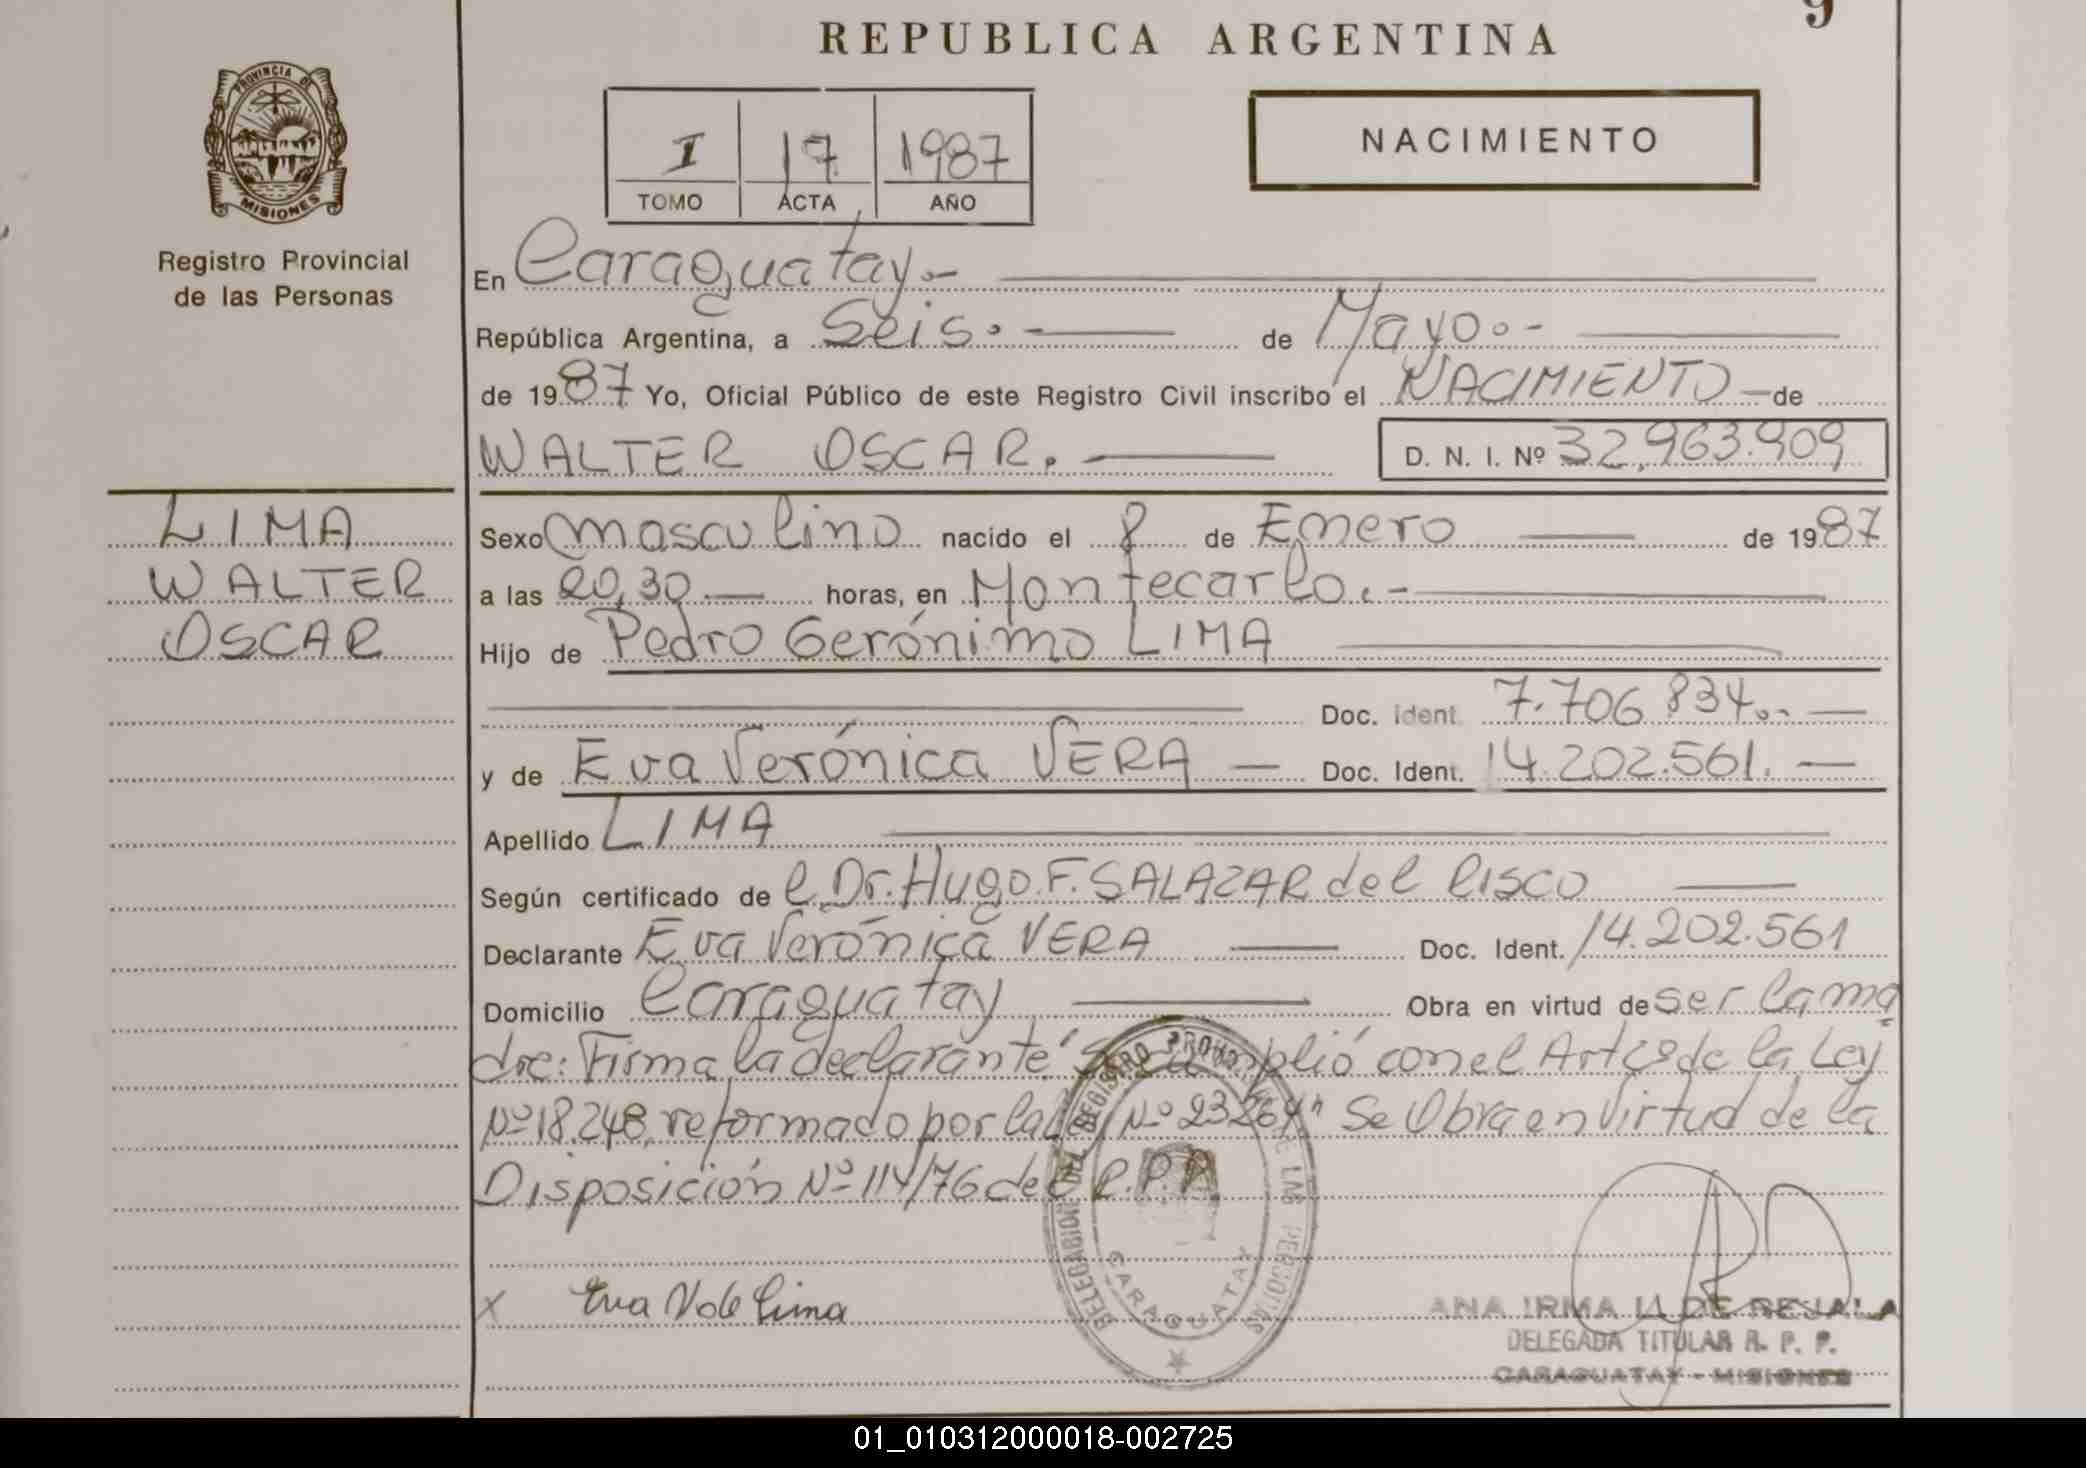 9
REPUBLICA ARGENTINA
PROVINCIA DE
MISIONES
Registro Provincial
de las Personas
I 17 1987
TOMO ACTA AÑO
NACIMIENTO
En Caraguatay.-
República Argentina, a Seis.- de Mayo.-
de 1987 Yo, Oficial Público de este Registro Civil inscribo el NACIMIENTO - de
WALTER OSCAR. D. N. I. Nº 32.963.909
LIMA
WALTER
OSCAR
Sexo masculino nacido el 8 de Enero de 1987
a las 20,30 horas, en Montecarlo.-
Hijo de Pedro Gerónimo LIMA
Doc. Ident. 7.706.834.-
y de Eva Verónica VERA - Doc. Ident. 14.202.561.-
Apellido LIMA
Según certificado de el Dr. Hugo. F. SALAZAR del RISCO
Declarante Eva Verónica VERA Doc. Ident. 14.202.561
Domicilio Caraguatay Obra en virtud de ser la ma
dre: Firma la declarante Se cumplió con el Art de la Ley
Nº 18.248, reformado por la Ley Nº 23264" Se Obra en Virtud de la
Disposición Nº 114/76 del R.P.P.
DELEGACION DEL REGISTRO PROVINCIAL DE LAS PERSONAS
CARAGUATAY
x Eva Lima
ANA IRMA DE REJALA
DELEGADA TITULAR R. P. P.
CARAGUATAY - MISIONES
01_010312000018-002725